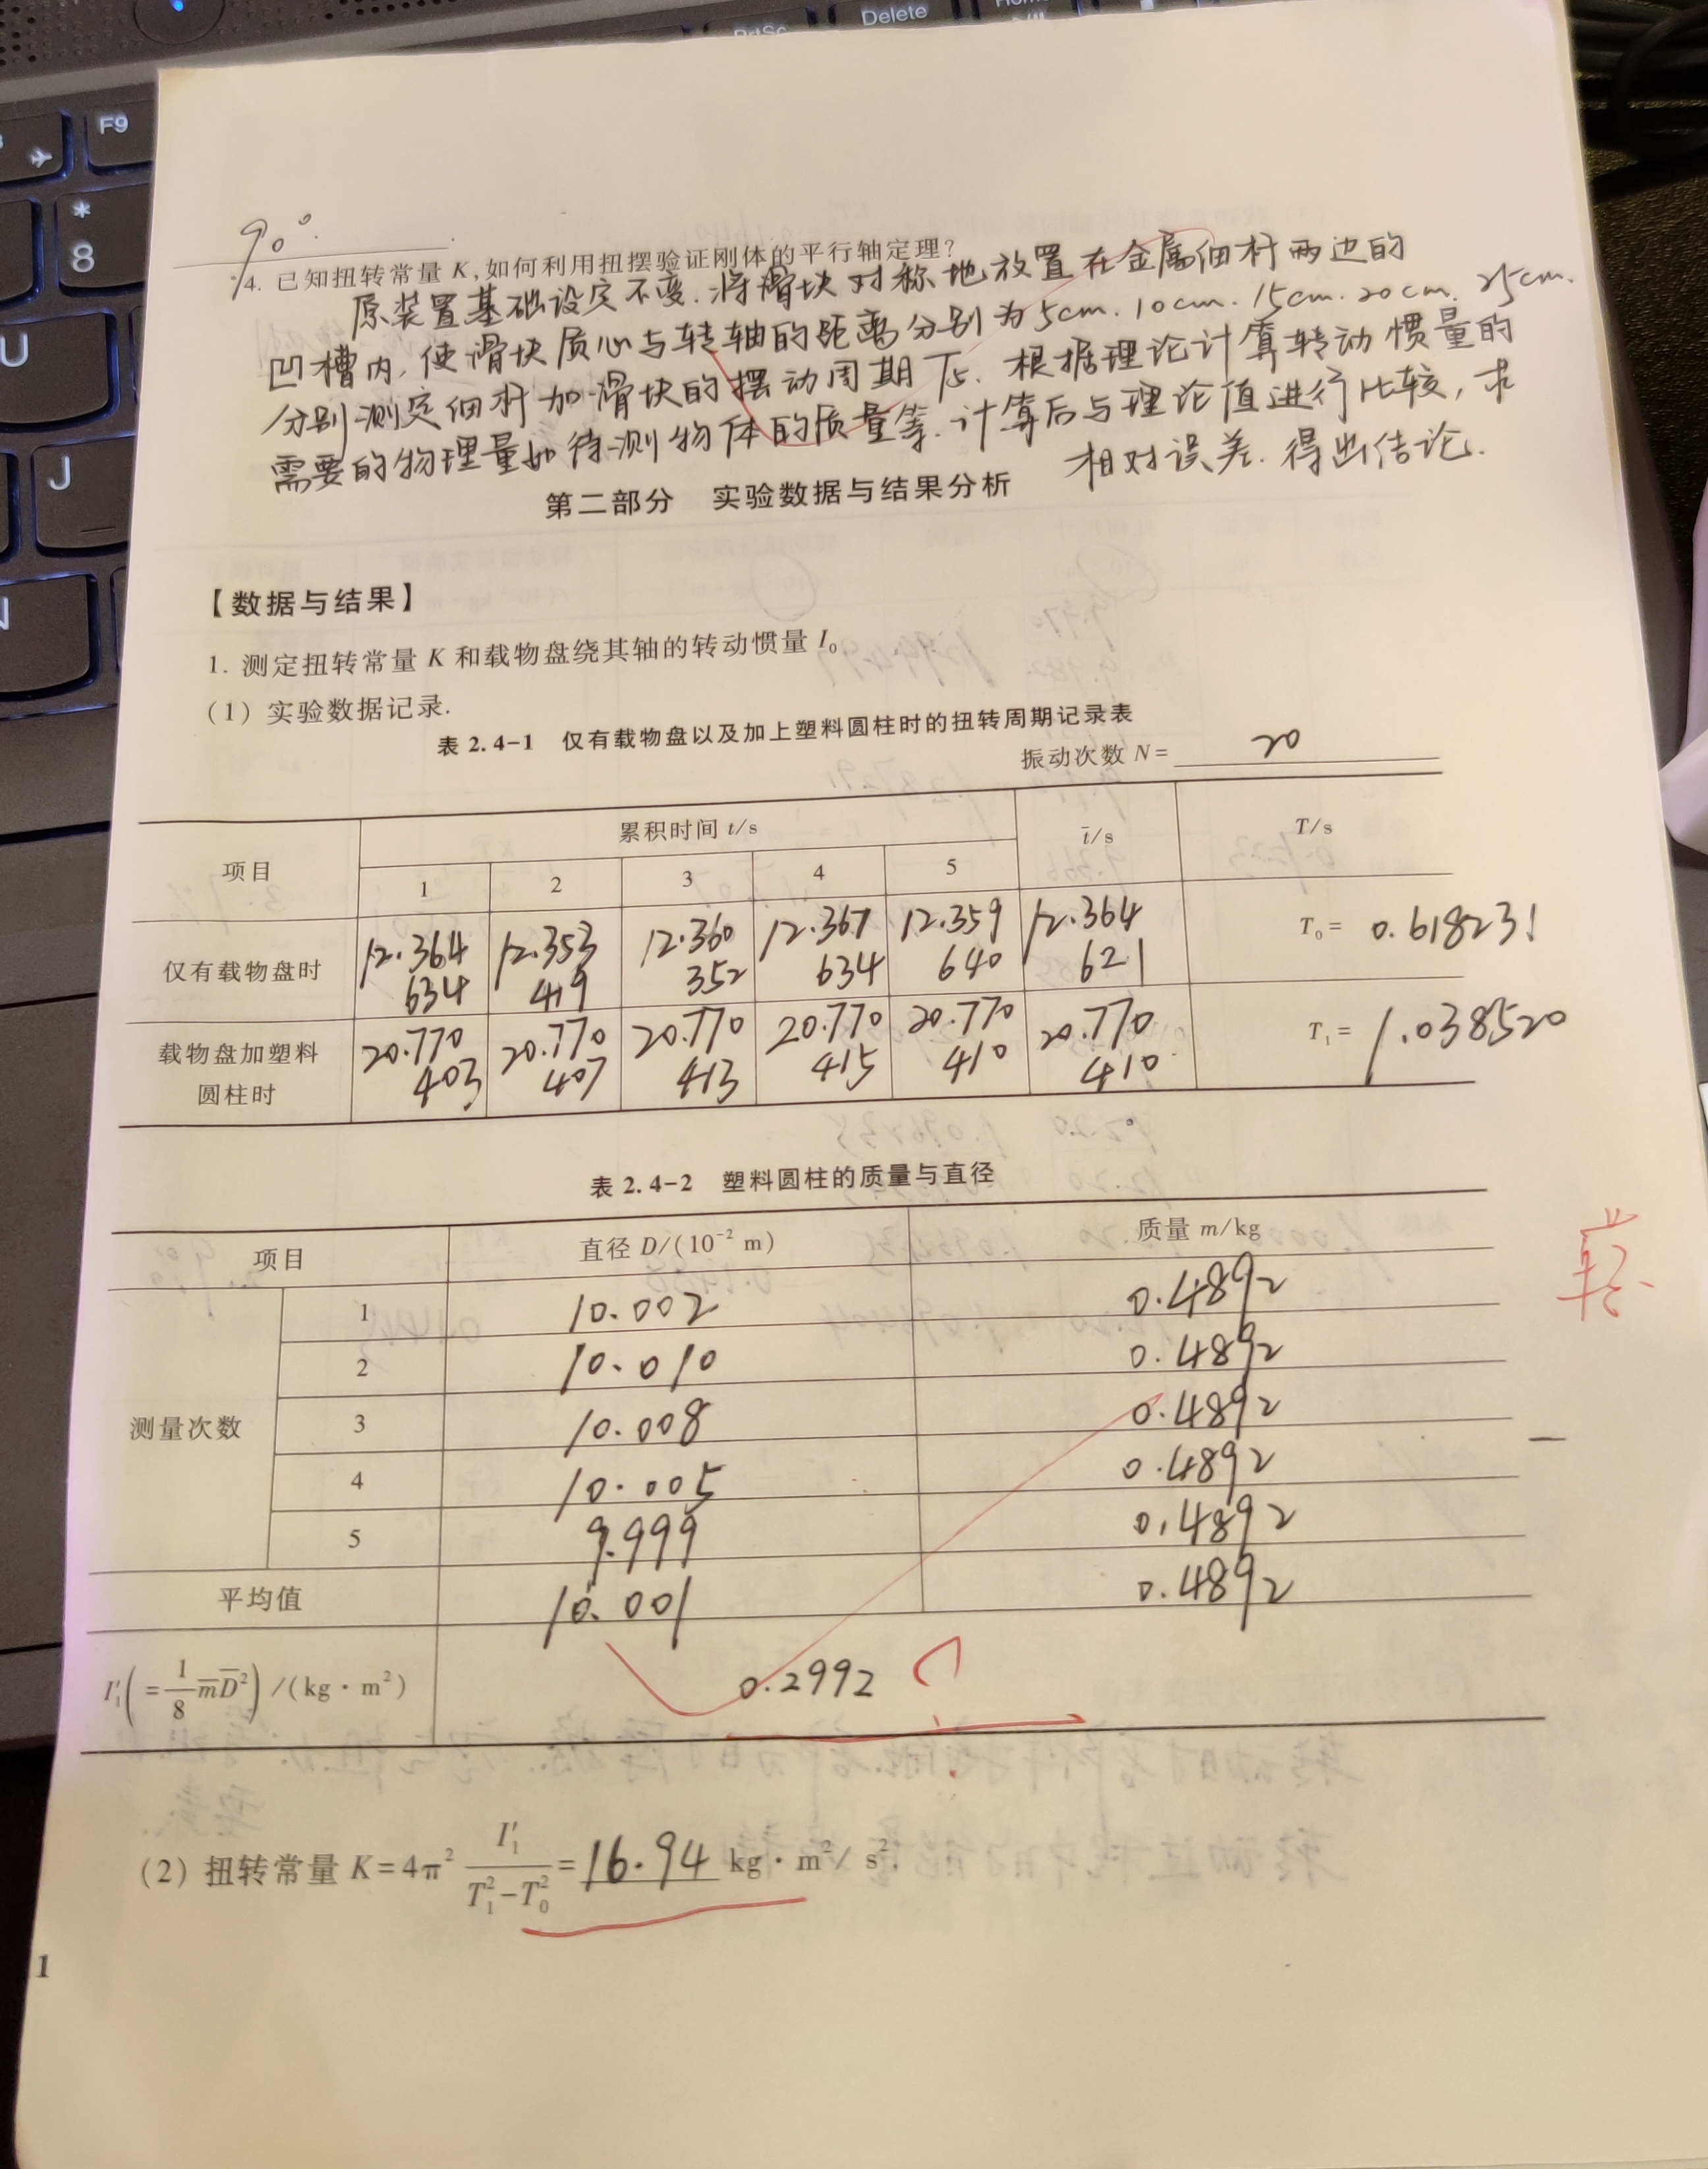 Delete
F9
*
8
U
J
N
90°.
4. 已知扭转常量 K,如何利用扭摆验证刚体的平行轴定理?
原装置基础设定不变.将滑块对称地放置在金属细杆两边的
凹槽内,使滑块质心与转轴的距离分别为5cm.10cm.15cm.20cm.25cm.
分别测定细杆加滑块的摆动周期T5.根据理论计算转动惯量的
需要的物理量如待测物体的质量等.计算后与理论值进行比较,求
相对误差.得出结论.
第二部分 实验数据与结果分析
【数据与结果】
1. 测定扭转常量 K 和载物盘绕其轴的转动惯量 I₀
(1) 实验数据记录.
表 2.4-1 仅有载物盘以及加上塑料圆柱时的扭转周期记录表
振动次数 N= 20
项目 累积时间 t/s t̄/s T/s
1 2 3 4 5
仅有载物盘时 12.364634 12.353419 12.360352 12.367634 12.359640 12.364621 T₀= 0.618231
载物盘加塑料圆柱时 20.770403 20.770407 20.770413 20.770415 20.770410 20.770410 T₁= 1.038520
表 2.4-2 塑料圆柱的质量与直径
项目 直径 D/(10⁻² m) 质量 m/kg
测量次数 1 10.002 0.4892
2 10.010 0.4892
3 10.008 0.4892
4 10.005 0.4892
5 9.999 0.4892
平均值 10.001 0.4892
I₁′(=1/8 m̄D̄²)/(kg·m²) 0.2992
(2) 扭转常量 K=4π² I₁′/(T₁²-T₀²)=16.94 kg·m²/s².
1